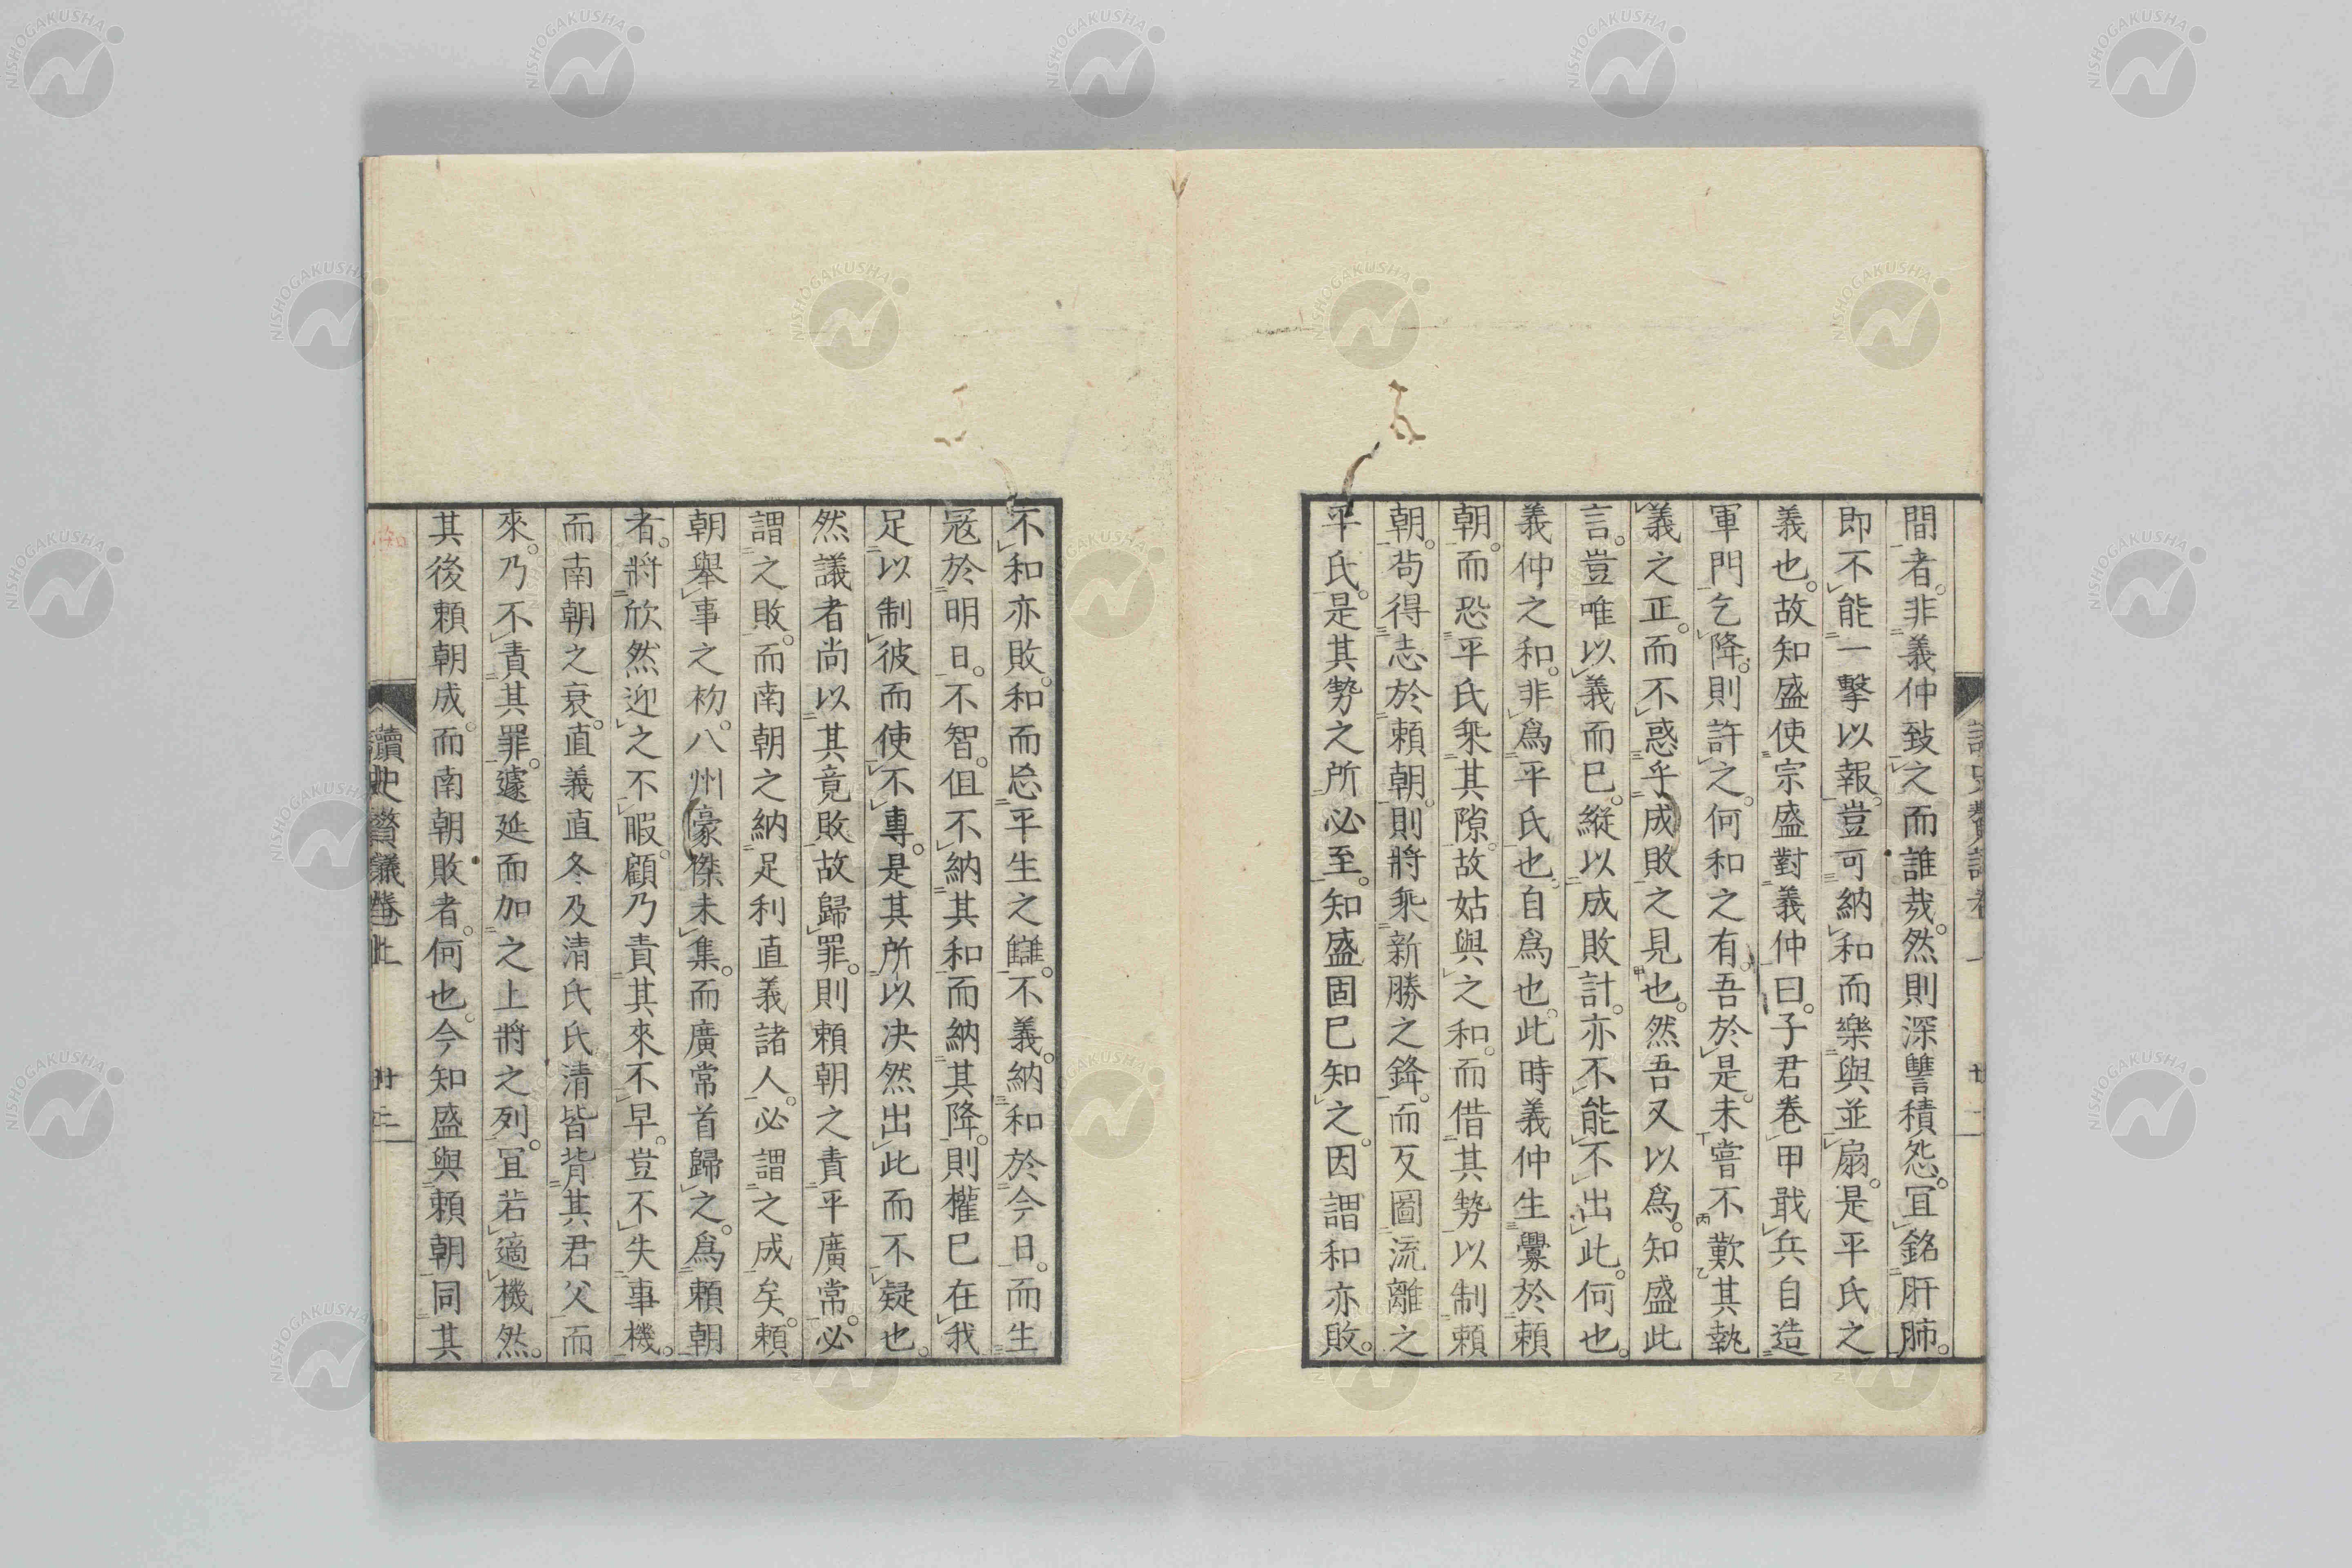 間者。非義仲致之而誰哉。然則深讐積怨。冝銘肝肺。
即不能一擊以報。豈可納和而樂與並扇。是平氏之
義也。故知盛使宗盛對義仲曰。子君卷甲戢兵自造
軍門乞降。則許之。何和之有。吾於是。未嘗不歎其執
義之正。而不惑乎成敗之見也。然吾又以爲。知盛此
言。豈唯以義而已。縱以成敗計。亦不能不出此。何也。
義仲之和。非爲平氏也。自爲也。此時義仲生釁於賴
朝。而恐平氏乘其隙。故姑與之和。而借其勢以制賴
朝。苟得志於賴朝。則將乘新勝之鋒。而圖流離之
平氏。是其勢之所必至。知盛固已知之。因謂和亦敗。
不和亦敗。和而忘平生之讎。不義。納和於今日。而生
冦於明日。不智。但不納其和而納其降。則權已在我
足以制彼而使不專。是其所以决然出此而不疑也。
然議者尚以其竟敗故歸罪。則賴朝之責平廣常。必
謂之敗。而南朝之納足利直義諸人。必謂之成矣。賴
朝舉事之初。八州豪傑未集。而廣常首歸之。爲賴朝
者。將欣然迎之不暇。顧乃責其來不早。豈不失事機。
而南朝之衰。直義直冬及清氏氏清皆背其君父而
來。乃不責其罪。遽延而加之上將之列。冝若適機然。
其後賴朝成。而南朝敗者。何也。今知盛與賴朝同其
讀史贅議卷上
廿二